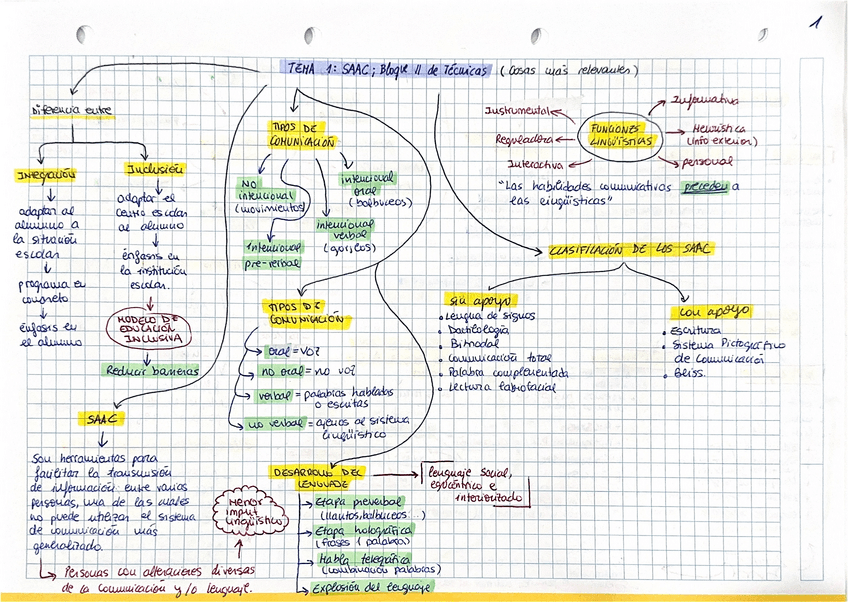 1
TEMA 1: SAAC; Bloque II de Técnicas (Cosas más relevantes)
Diferencia entre
Integración
adaptar al
alumno a
la situación
escolar
programa en
concreto
énfasis en
el alumno
Inclusión
adaptar el
centro escolar
al alumno
énfasis en
la institución
escolar.
MODELO DE
EDUCACIÓN
INCLUSIVA
Reducir barreras
SAAC
Son herramientas para
facilitar la transmisión
de información entre varias
personas, una de las cuales
no puede utilizar el sistema
de comunicación más
generalizado.
Personas con alteraciones diversas
de la comunicación y/o lenguaje.
TIPOS DE
COMUNICACIÓN
NO
intencional
(movimientos)
Intencional
pre-verbal
intencional
verbal
intencional
oral
(balbuceos)
TIPOS DE
COMUNICACIÓN
oral = voz
no oral = no voz
verbal = palabras habladas
o escritas
no verbal = ajenos al sistema
lingüístico
DESARROLLO DEL
LENGUAJE
lenguaje social,
egocéntrico e
interiorizado
Etapa preverbal
(llantos, balbuceos...)
Etapa holográfica
(frases 1 palabra)
Habla telegráfica
(combinación palabras)
Explosión del lenguaje
Menor
input
lingüístico
FUNCIONES
LINGÜÍSTICAS
Instrumental
Reguladora
Interactiva
Informativa
Heurística
(info exterior)
personal
"Las habilidades comunicativas preceden a
las lingüísticas"
CLASIFICACIÓN DE LOS SAAC
sin apoyo
• Lengua de signos
• Dactilología
• Bimodal
• Comunicación total
• Palabra complementada
• Lectura labiofacial
con apoyo
• Escritura
• Sistema Pictográfico
de Comunicación
• Bliss.